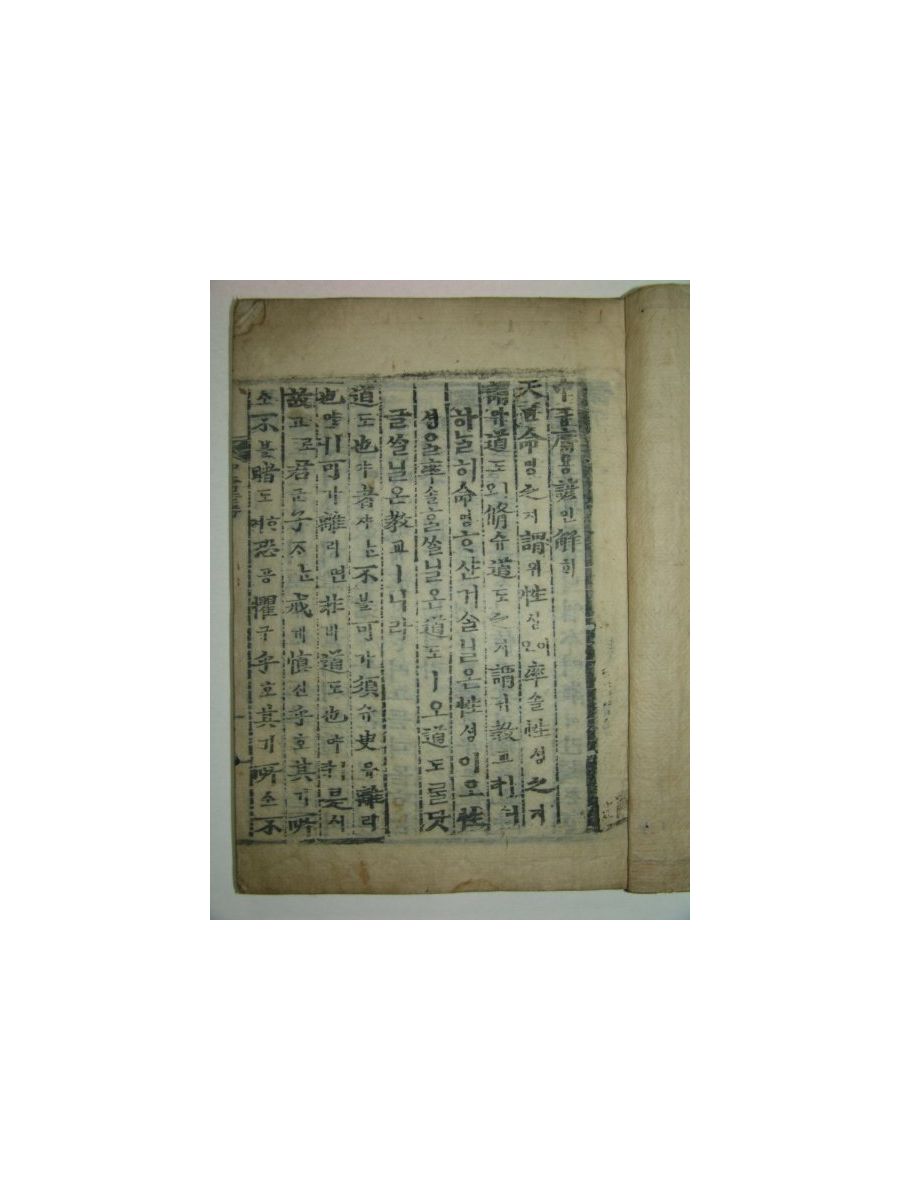 中듕庸용諺언解ᄒᆡ
天텬命명之지謂위性셩이오率솔性셩之지
謂위道도ㅣ오脩슈道도之지謂위敎교ㅣ니라
하ᄂᆞᆯ히命명ᄒᆞ샨거슬닐온性셩이오性
셩을率솔올쓸닐온道도ㅣ오道도ᄅᆞᆯ닷
글쓸닐온敎교ㅣ니라
道도也야者쟈ᄂᆞᆫ不블可가須슈臾유離리
也야ㅣ니可가離리면非비道도也야ㅣ라是시
故고로君군子ᄌᆞᄂᆞᆫ戒계愼신乎호其기所
소不블睹도ᄒᆞ며恐공懼구乎호其기所소不